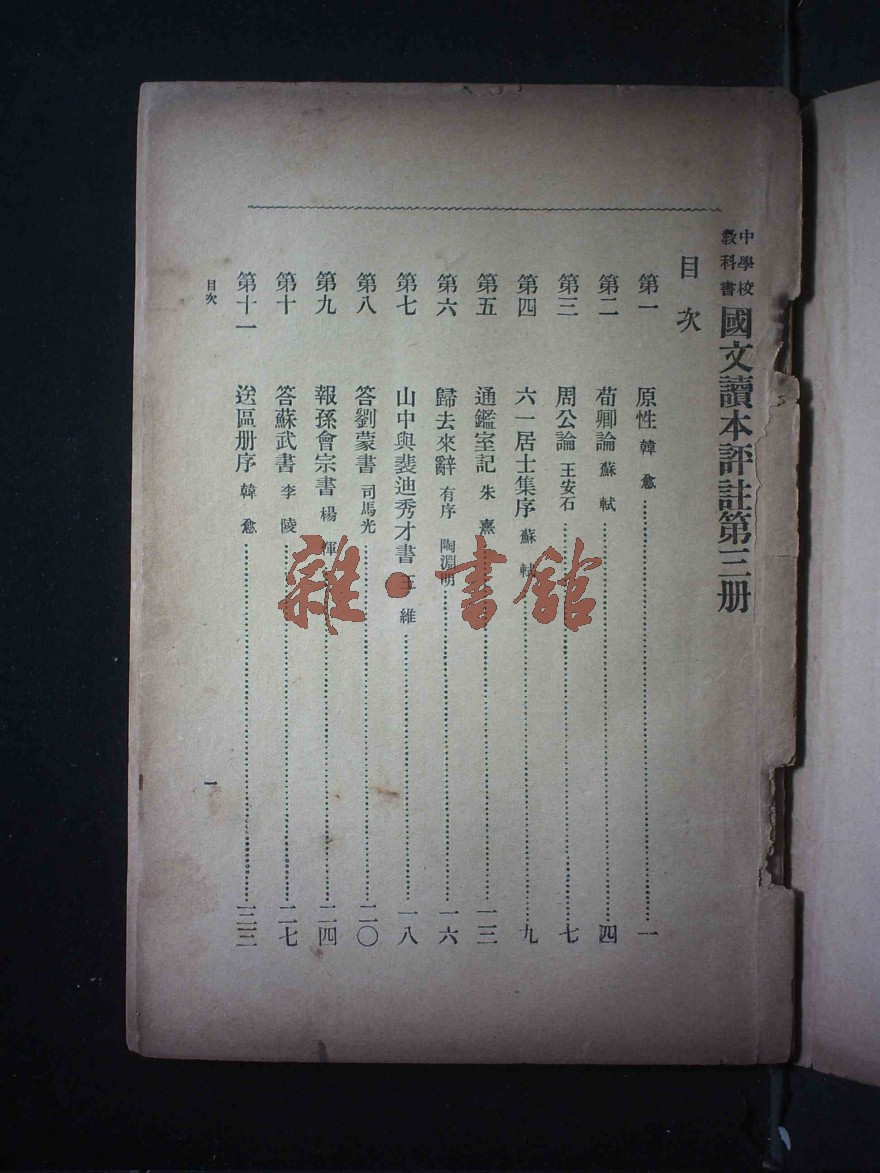 中學校教科書 國文讀本評註第三册
目次
第一 原性 韓愈 一
第二 荀卿論 蘇軾 四
第三 周公論 王安石 七
第四 六一居士集序 蘇軾 九
第五 通鑑室記 朱熹 一三
第六 歸去來辭 有序 陶淵明 一六
第七 山中與裴迪秀才書 王維 一八
第八 答劉蒙書 司馬光 二〇
第九 報孫會宗書 楊惲 二四
第十 答蘇武書 李陵 二七
第十一 送區册序 韓愈 三三
目次 一
雜·書館